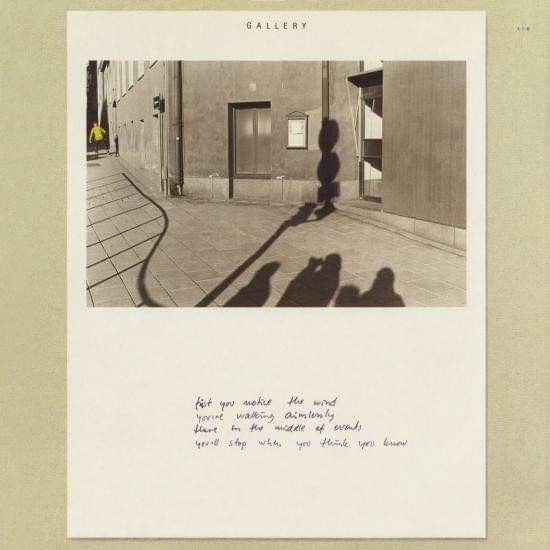 GALLERY
first you notice the wind
you're walking aimlessly
there in the middle of events
you'll stop when you think you know